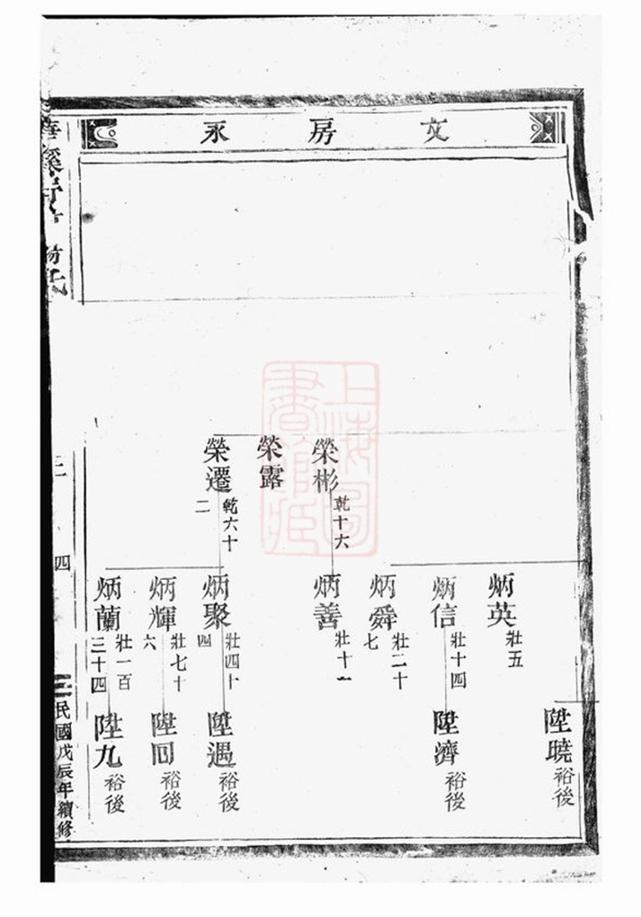 文房永
榮彬 乾十六
榮露
榮遷 乾六十二
炳英 壯五
炳信 壯十四
炳舜 壯二十七
炳善 壯十一
炳聚 壯四十四
炳輝 壯七十六
炳蘭 壯一百三十四
陞曉 裕後
陞濟 裕後
陞遇 裕後
陞回 裕後
陞九 裕後
氏
二
四
民國戊辰年續修
上海圖書館藏